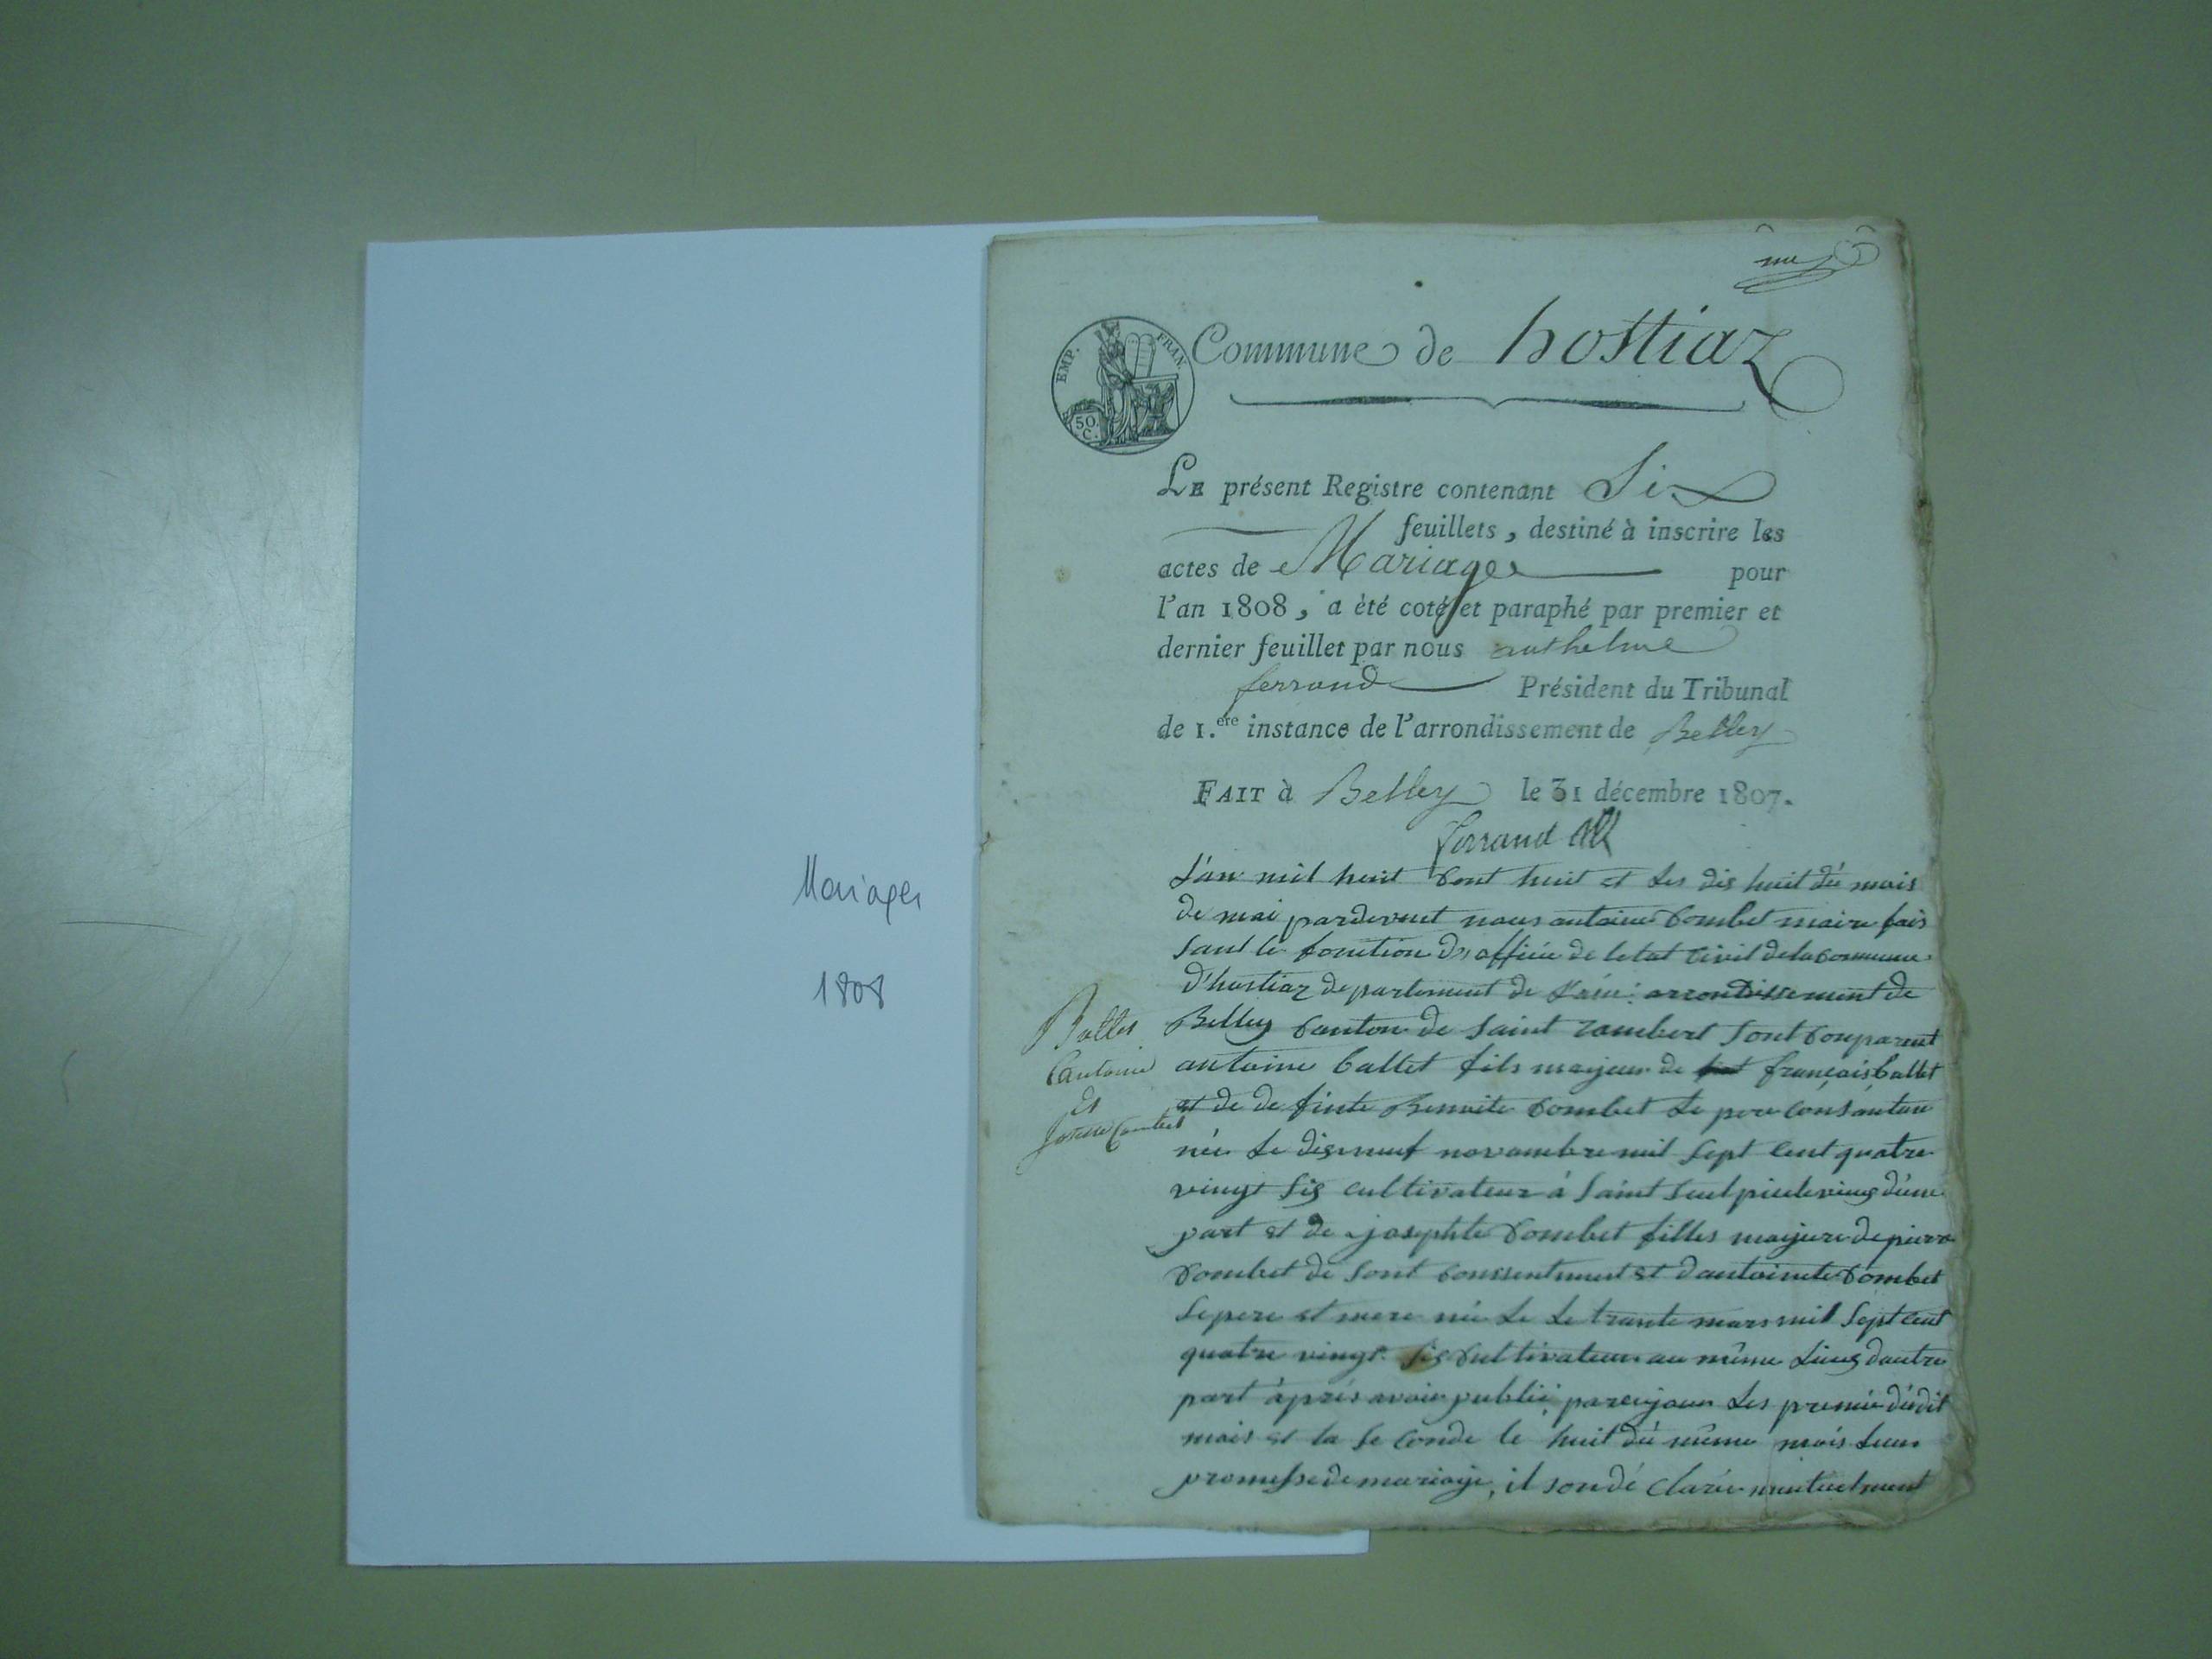 Mariages
1808
EMP. FRAN.
50.
C.
Commune de hostiaz
LE présent Registre contenant Six
feuillets, destiné à inscrire les
actes de Mariage pour
l'an 1808, a èté coté et paraphé par premier et
dernier feuillet par nous anthelme
ferrand Président du Tribunal
de 1.ere instance de l'arrondissement de Belley
FAIT à Belley le 31 décembre 1807.
ferrand
Ballet
antoine
et
L'an mil huit Cent huit et les dis huit du mois
de mai pardevent nous antoine Combet maire fais
sant le fonction de officie de letat Civil de la Commune
d'hostiaz departement de L'ain arrondissement de
Belley Canton de Saint rambert Sont Comparent
antoine ballet fils majeur de françois ballet
et de de finte Benoite Combet Le pere Consantan
née Le disneuf novambre mil Sept Cent quatre
vingt Sis cultivateur à Saint Sulpice le vieug d'une
part et de josephte Combet filles majeure de pierre
Combet de Sont Conssentment et d'antoinete Combet
Se pere et mere née Le Le trante mars mil Sept Cent
quatre vingt Sis Cultivateur au même Lieug d'autre
part àprés avoir publié par Les premié dudit
mois et la Seconde le huit du même mois Leur
promesse de mariage, il son dé Clarée mutuelment